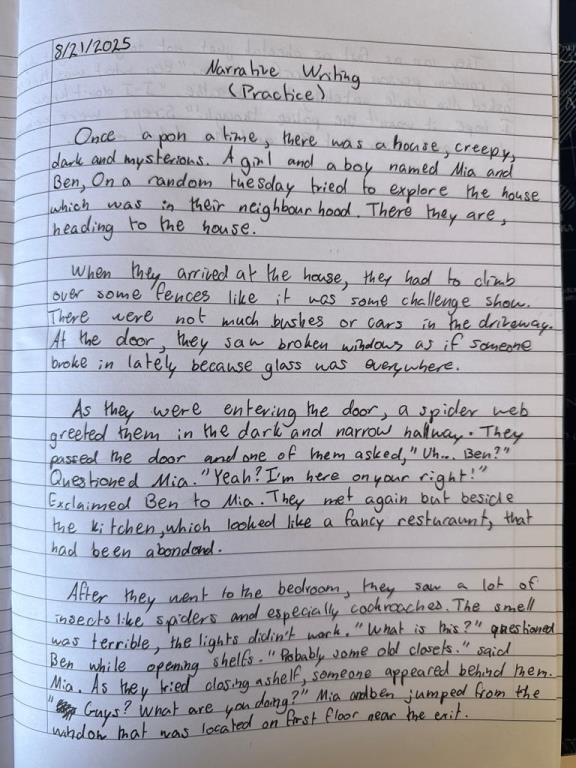 8/21/2025
Narrative Writing
(Practice)
Once apon a time, there was a house, creepy,
dark and mysterious. A girl and a boy named Mia and
Ben, On a random tuesday tried to explore the house
which was in their neighbour hood. There they are,
heading to the house.
When they arrived at the house, they had to climb
over some fences like it was some challenge show.
There were not much bushes or cars in the driveway.
At the door, they saw broken windows as if someone
broke in lately because glass was everywhere.
As they were entering the door, a spider web
greeted them in the dark and narrow hallway. They
passed the door and one of them asked, "Uh... Ben?"
Questioned Mia. "Yeah? I'm here on your right!"
Exclaimed Ben to Mia. They met again but beside
the kitchen, which looked like a fancy resturaunt, that
had been abondond.
After they went to the bedroom, they saw a lot of
insects like spiders and especially cockroaches. The smell
was terrible, the lights didin't work. "What is this?" questioned
Ben while opening shelfs. "Probably some old closets." said
Mia. As they tried closing a shelf, someone appeared behind them.
"Guys? What are you doing?" Mia and ben jumped from the
window that was located on first floor near the exit.